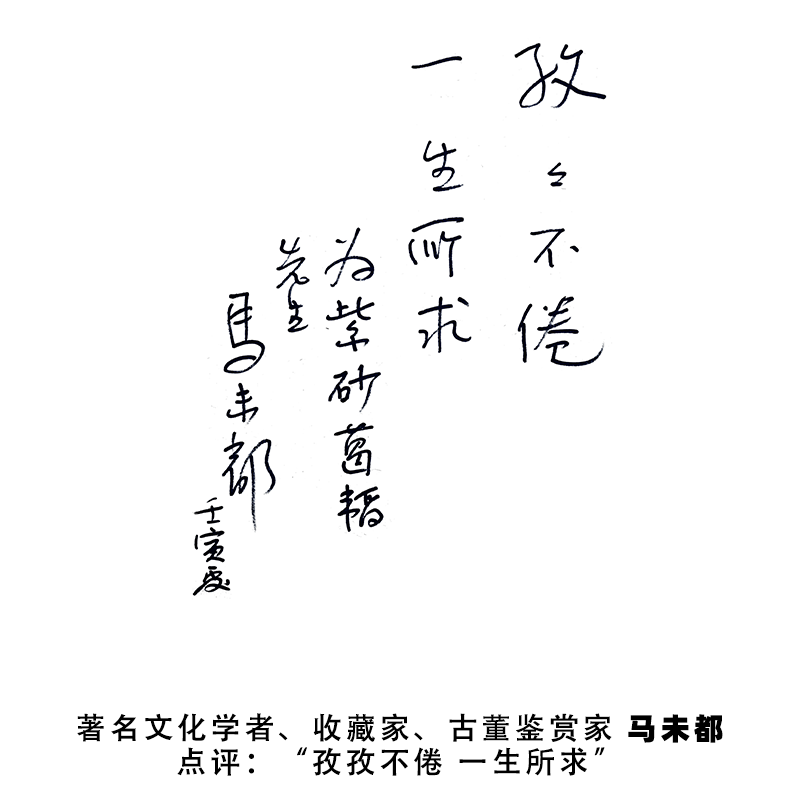 孜々不倦
一生所求
为紫砂葛韬
先生
马未都
壬寅夏
著名文化学者、收藏家、古董鉴赏家 马未都
点评：“孜孜不倦 一生所求”